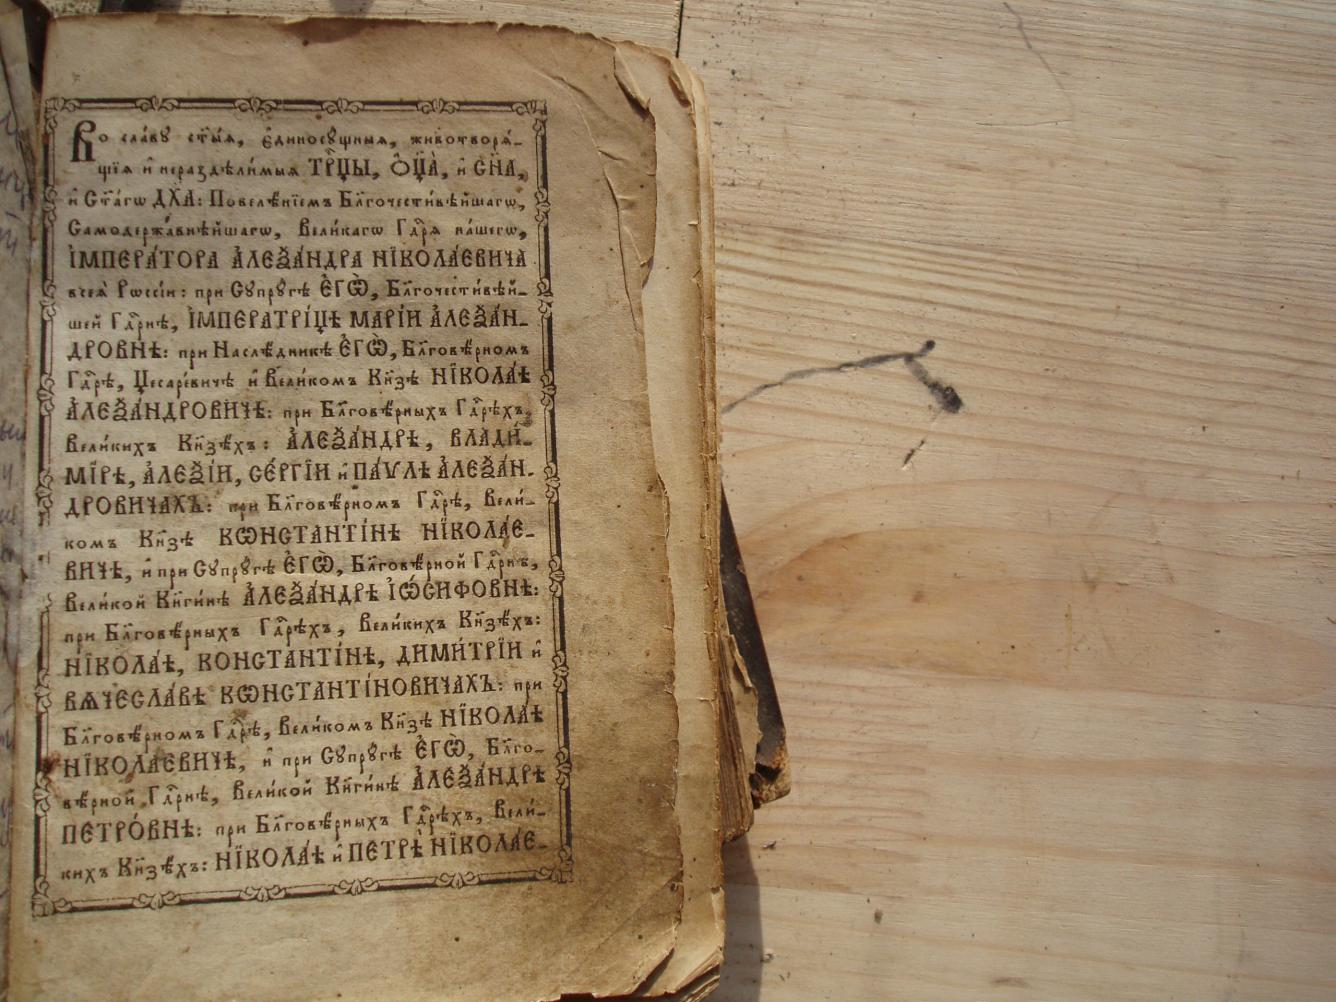 Во сла́вꙋ ст҃ы́ѧ, є҆диносꙋ́щныѧ, животворѧ́-
щїѧ и҆ нераздѣли́мыѧ ТРⷪ҇ЦЫ, Ѻ҆Ц҃А̀, и҆ СН҃А,
и҆ Ст҃а́гѡ ДХ҃А: Повелѣ́нїемъ Бл҃гочести́вѣйшагѡ,
Самодержа́внѣйшагѡ, Вели́кагѡ Гдⷭ҇рѧ на́шегѡ,
І҆МПЕРА́ТОРА А҆ЛЕѮА́НДРА НЇКОЛА́ЕВИЧА
всеѧ̀ Рѡссі́и: при Сꙋпрꙋ́гѣ Є҆ГѠ̀, Бл҃гочести́вѣй-
шей Гдⷭ҇рнѣ, І҆МПЕРАТРІ́ЦѢ МАРІ́И А҆ЛЕѮА́Н-
ДРОВНѢ: при Наслѣ́дникѣ Є҆ГѠ̀, Бл҃говѣ́рномъ
Гдⷭ҇рѣ, Цесаре́вичѣ и҆ Вели́комъ Кнѧ҃зѣ НЇКОЛА́Ѣ
А҆ЛЕѮА́НДРОВИЧѢ: при Бл҃говѣ́рныхъ Гдⷭ҇рѣхъ,
Вели́кихъ Кнѧ҃зѣ́хъ: А҆ЛЕѮА́НДРѢ, ВЛАДИ́-
МЇРѢ, А҆ЛЕѮІ́И, СЕ́РГЇИ и҆ ПА́ѴЛѢ А҆ЛЕѮА́Н-
ДРОВИЧАХЪ: при Бл҃говѣ́рномъ Гдⷭ҇рѣ, Вели́-
комъ Кнѧ҃зѣ КѠНСТАНТІ́НѢ НЇКОЛА́Е-
ВИЧѢ, и҆ при Сꙋпрꙋ́гѣ Є҆ГѠ̀, Бл҃говѣ́рной Гдⷭ҇рнѣ,
Вели́кой Кнѧги́нѣ А҆ЛЕѮА́НДРѢ І҆Ѡ́СИФОВНѢ:
при Бл҃говѣ́рныхъ Гдⷭ҇рѣхъ, Вели́кихъ Кнѧ҃зѣ́хъ:
НЇКОЛА́Ѣ, КОНСТАНТІ́НѢ, ДИМИ́ТРЇИ и҆
ВѦЧЕСЛА́ВѢ КѠНСТАНТІ́НОВИЧАХЪ: при
Бл҃говѣ́рномъ Гдⷭ҇рѣ, Вели́комъ Кнѧ҃зѣ НЇКОЛА́Ѣ
НЇКОЛА́ЕВИЧѢ, и҆ при Сꙋпрꙋ́гѣ Є҆ГѠ̀, Бл҃го-
вѣ́рной Гдⷭ҇рнѣ, Вели́кой Кнѧги́нѣ А҆ЛЕѮА́НДРѢ
ПЕТРО́ВНѢ: при Бл҃говѣ́рныхъ Гдⷭ҇рѣхъ, Вели́-
кихъ Кнѧ҃зѣ́хъ: НЇКОЛА́Ѣ и҆ ПЕТРѢ̀ НЇКОЛА́Е-